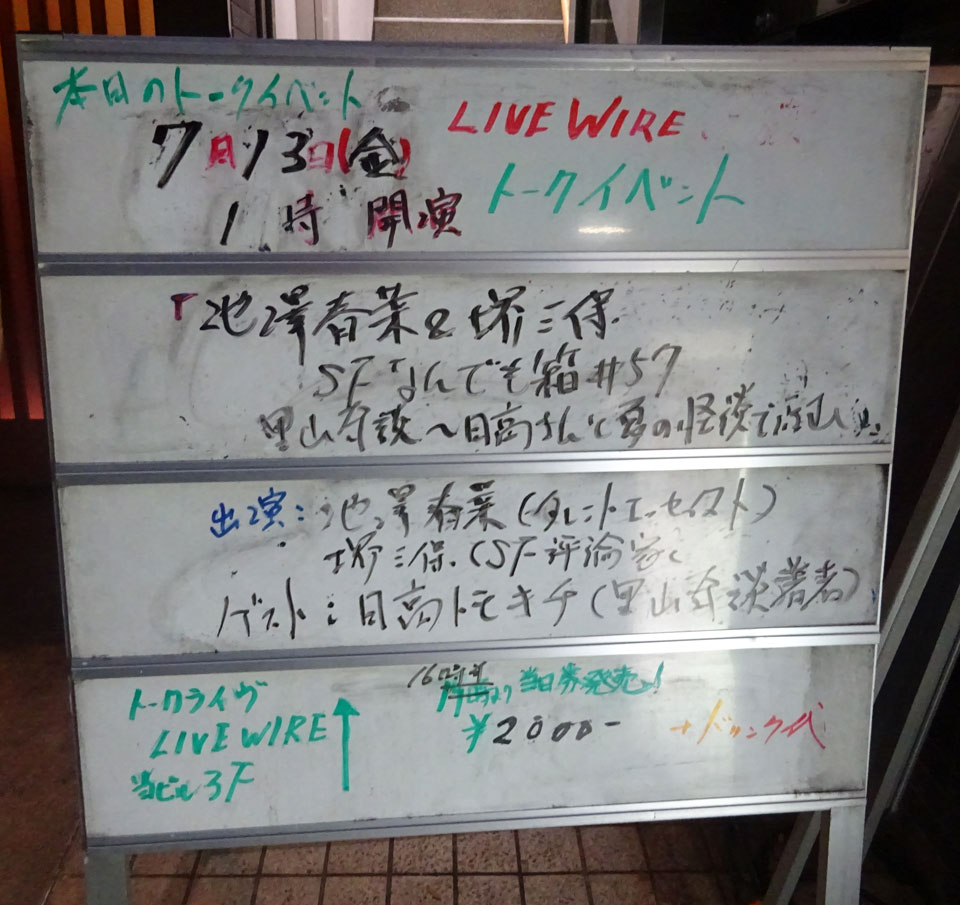 本日のトークイベント
7月13日(金)
1時 開演
LIVE WIRE
トークイベント
「池澤春菜&堺三保
SFなんでも箱#57
里山奇談〜日高さんと夏の怪談で涼む
出演:池澤春菜(タレントエッセイスト)
堺三保(SF評論家)
ゲスト:日高トモキチ(里山奇談著者)
トークライヴ
LIVE WIRE
当ビル3F
より当日券発売!
¥2000-
+ドリンク代